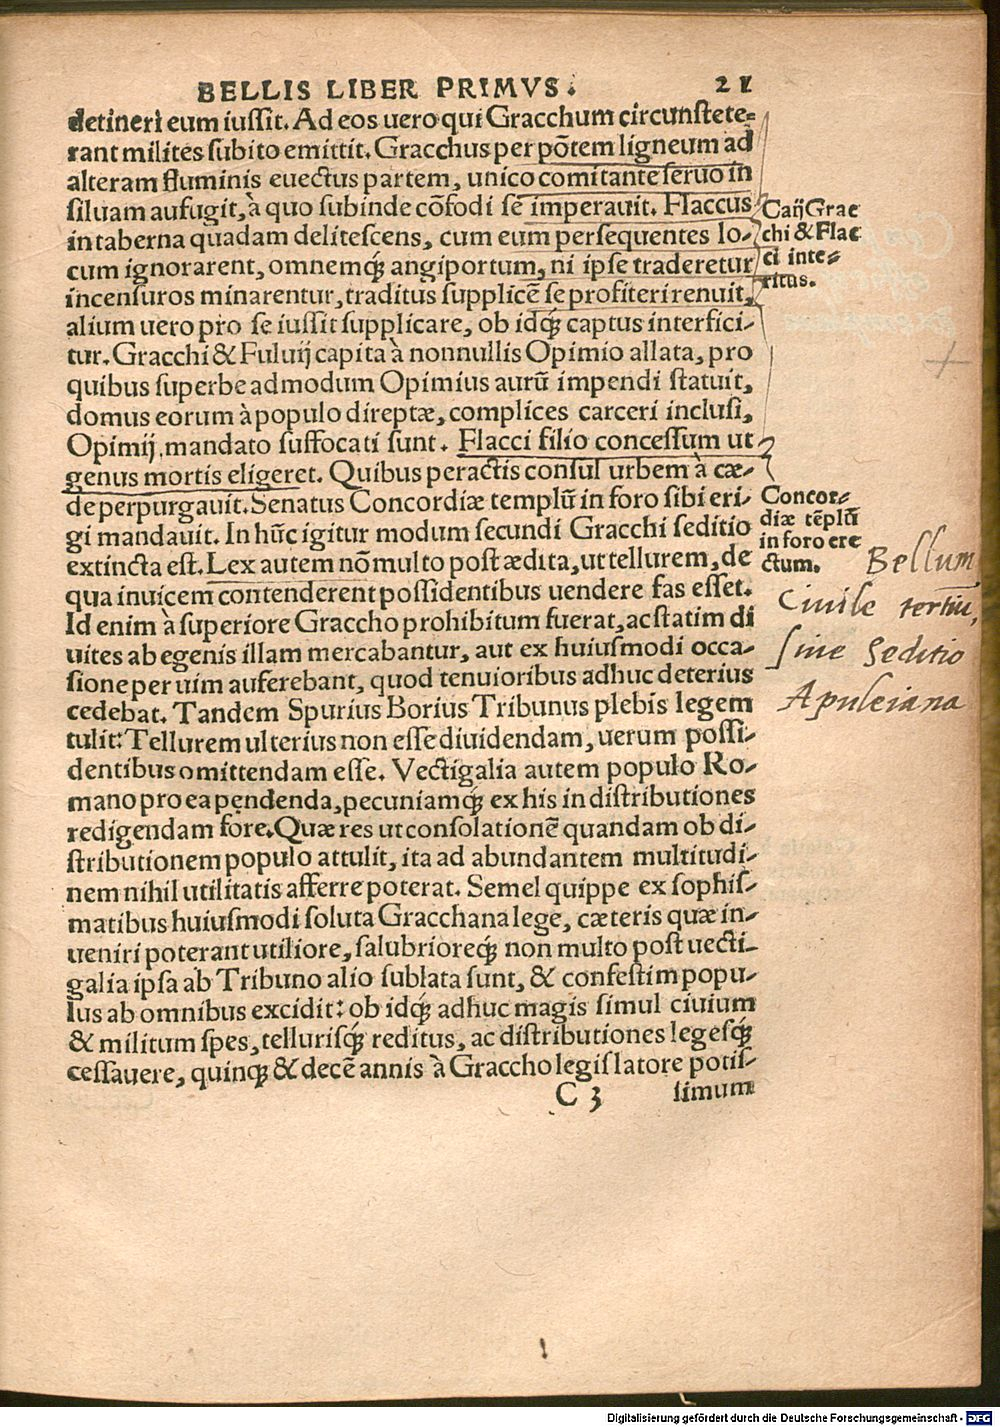 BELLIS LIBER PRIMVS. 21
detineri eum iussit. Ad eos uero qui Gracchum circunstete-
rant milites subito emittit. Gracchus per põtem ligneum ad
alteram fluminis euectus partem, unico comitante seruo in
siluam aufugit, à quo subinde cõfodi sẽ imperauit. Flaccus
in taberna quadam delitescens, cum eum persequentes lo-
cum ignorarent, omnemq́; angiportum, ni ipse traderetur
incensuros minarentur, traditus supplicẽ se profiteri renuit,
alium uero pro se iussit supplicare, ob idq́; captus interfici-
tur. Gracchi & Fuluij capita à nonnullis Opimio allata, pro
quibus superbe admodum Opimius aurũ impendi statuit,
domus eorum à populo direptæ, complices carceri inclusi,
Opimij mandato suffocati sunt. Flacci filio concessum ut
genus mortis eligeret. Quibus peractis consul urbem à cæ-
de perpurgauit. Senatus Concordiæ templũ in foro sibi eri-
gi mandauit. In hũc igitur modum secundi Gracchi seditio
extincta est. Lex autem nõ multo post ædita, ut tellurem, de
qua inuicem contenderent possidentibus uendere fas esset.
Id enim à superiore Graccho prohibitum fuerat, ac statim di
uites ab egenis illam mercabantur, aut ex huiusmodi occa-
sione per uim auferebant, quod tenuioribus adhuc deterius
cedebat. Tandem Spurius Borius Tribunus plebis legem
tulit: Tellurem ulterius non esse diuidendam, uerum possi-
dentibus omittendam esse. Vectigalia autem populo Ro-
mano pro ea pendenda, pecuniamq́; ex his in distributiones
redigendam fore. Quæ res ut consolationẽ quandam ob di-
stributionem populo attulit, ita ad abundantem multitudi-
nem nihil utilitatis afferre poterat. Semel quippe ex sophis-
matibus huiusmodi soluta Gracchana lege, cæteris quæ in-
ueniri poterant utiliore, salubrioreq́; non multo post uecti-
galia ipsa ab Tribuno alio sublata sunt, & confestim popu-
lus ab omnibus excidit: ob idq́; adhuc magis simul ciuium
& militum spes, tellurisq́; reditus, ac distributiones legesq́;
cessauere, quinq; & decẽ annis à Graccho legislatore potis-
C 3 simum
Caij Grac
chi & Flac
ci inte-
ritus.
Concor-
diæ tẽplũ
in foro ere
ctum.
Bellum
Ciuile tertiu,
siue Seditio
Apuleiana
Digitalisierung gefördert durch die Deutsche Forschungsgemeinschaft - DFG